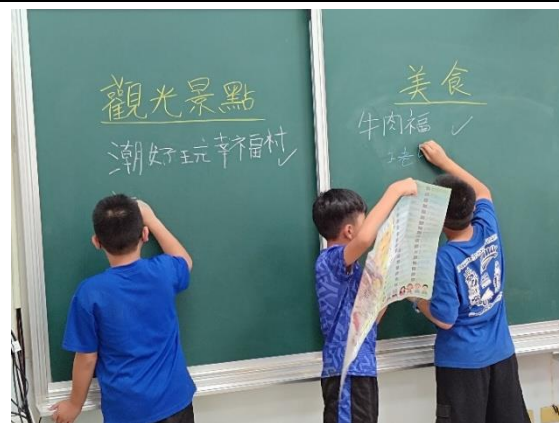 觀光景點
潮好玩幸福村✓
美食
牛肉福 ✓